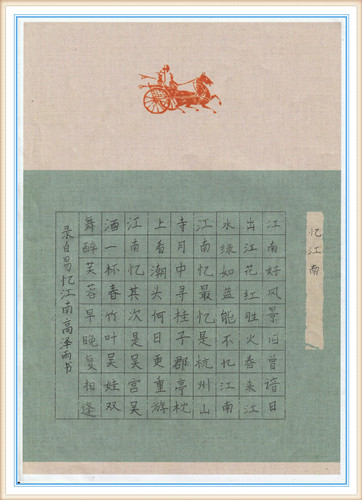 忆江南
江南好风景旧曾谙日
出江花红胜火春来江
水绿如蓝能不忆江南
江南忆最忆是杭州山
寺月中寻桂子郡亭枕
上看潮头何日更重游
江南忆其次是吴宫吴
酒一杯春竹叶吴娃双
舞醉芙蓉早晚复相逢
录自易忆江南高泽雨书